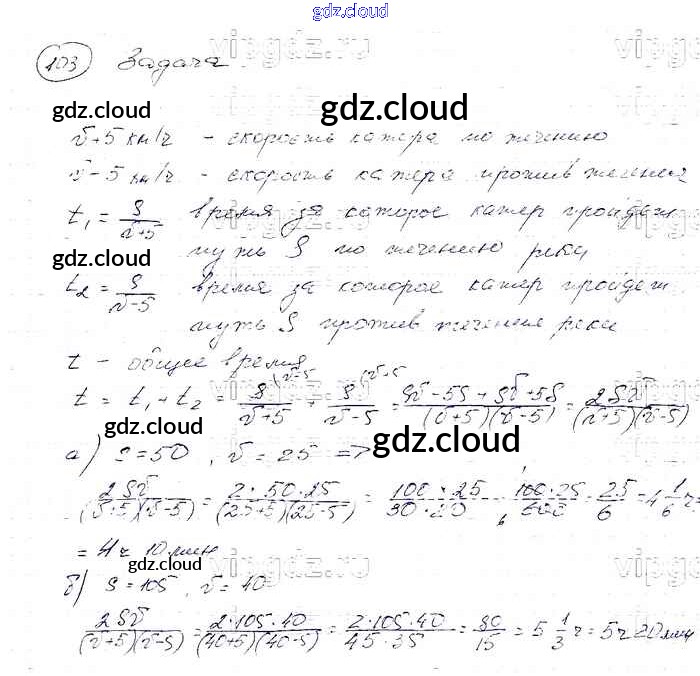 gdz.cloud
vipgdz.ru vipgdz.ru
103 Задача
gdz.cloud gdz.cloud
v+5 км/ч - скорость катера по течению
v-5 км/ч - скорость катера против течения
t₁ = S/(v+5) время за которое катер пройдет
путь S по течению реки
gdz.cloud
t₂ = S/(v-5) время за которое катер пройдет
путь S против течения реки
t - общее время
t = t₁ + t₂ = S/(v+5) + S/(v-5) = (Sv-5S+Sv+5S)/((v+5)(v-5)) = 2Sv/((v+5)(v-5))
gdz.cloud gdz.cloud
а) S=50, v=25 =>
2Sv/((v+5)(v-5)) = 2·50·25/((25+5)(25-5)) = 100·25/30·20 = 100·25/600 = 25/6 = 4 1/6 ч =
= 4ч 10 мин
gdz.cloud
б) S=105, v=40
2Sv/((v+5)(v-5)) = 2·105·40/((40+5)(40-5)) = 2·105·40/45·35 = 80/15 = 5 1/3 ч = 5ч 20 мин